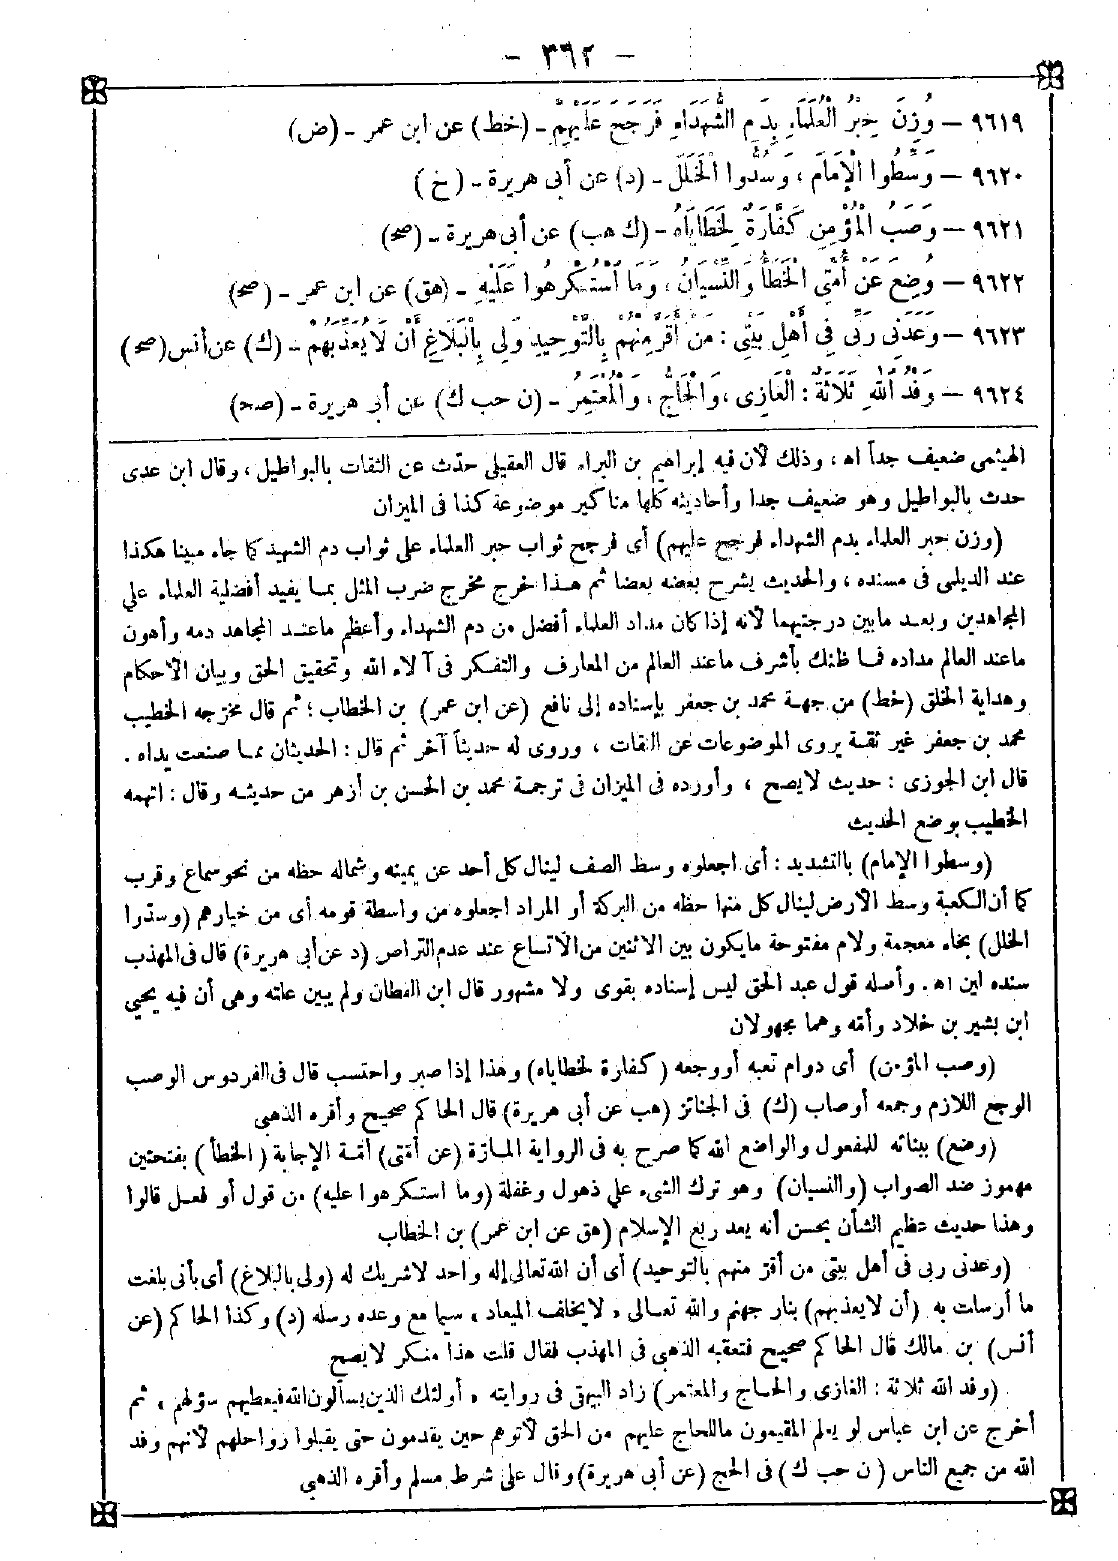 - ٣٦٢ -
٩٦١٩ - وُزِنَ حِبْرُ الْعُلَمَاءِ بِدَمِ الشُّهَدَاءِ فَرَجَحَ عَلَيْهِمْ - (خط) عن ابن عمر - (ض)
٩٦٢٠ - وَسِّطُوا الْإِمَامَ ، وَسُدُّوا الْخَلَلَ - (د) عن أبى هريرة - (خ)
٩٦٢١ - وَصَبُ الْمُؤْمِنِ كَفَّارَةٌ لِخَطَايَاهُ - (ك هب) عن أبى هريرة - (صح)
٩٦٢٢ - وُضِعَ عَنْ أُمَّتِى الْخَطَأُ وَالنِّسْيَانُ ، وَمَا اسْتُكْرِهُوا عَلَيْهِ - (هق) عن ابن عمر - (صح)
٩٦٢٣ - وَعَدَنِى رَبِّى فِى أَهْلِ بَيْتِى : مَنْ أَقَرَّ مِنْهُمْ بِالتَّوْحِيدِ وَلِى بِالْبَلَاغِ أَنْ لَا يُعَذِّبَهُمْ - (ك) عن أنس (صح)
٩٦٢٤ - وَفْدُ اللهِ ثَلَاثَةٌ : الْغَازِى ، وَالْحَاجُّ ، وَالْمُعْتَمِرُ - (ن حب ك) عن أبى هريرة - (صح)
الهيثمى ضعيف جداً اه ، وذلك لأن فيه إبراهيم بن البراء قال العقيلى حدّث عن الثقات بالبواطيل ، وقال ابن عدى
حدث بالبواطيل وهو ضعيف جدا وأحاديثه كلها مناكير موضوعة كذا فى الميزان
(وزن حبر العلماء بدم الشهداء فرجح عليهم) أى فرجح ثواب حبر العلماء على ثواب دم الشهيد كما جاء مبينا هكذا
عند الديلمى فى مسنده ، والحديث يشرح بعضه بعضا ثم هذا خرج مخرج ضرب المثل بما يفيد أفضلية العلماء على
المجاهدين وبعد مابين درجتيهما لأنه إذا كان مداد العلماء أفضل من دم الشهداء وأعظم ماعند المجاهد دمه وأهون
ماعند العالم مداده فما ظنك بأشرف ماعند العالم من المعارف والتفكر فى آلاء الله وتحقيق الحق وبيان الأحكام
وهداية الخلق (خط) من جهة محمد بن جعفر بإسناده إلى نافع (عن ابن عمر) بن الخطاب ؛ ثم قال مخرجه الخطيب
محمد بن جعفر غير ثقة يروى الموضوعات عن الثقات ، وروى له حديثاً آخر ثم قال : الحديثان مما صنعت يداه .
قال ابن الجوزى : حديث لايصح ، وأورده فى الميزان فى ترجمة محمد بن الحسن بن أزهر من حديثه وقال : اتهمه
الخطيب بوضع الحديث
(وسطوا الإمام) بالتشديد : أى اجعلوه وسط الصف لينال كل أحد عن يمينه وشماله حظه من نحو سماع وقرب
كما أن الكعبة وسط الأرض لينال كل منها حظه من البركة أو المراد اجعلوه من واسطة قومه أى من خيارهم (وسدوا
الخلل) بخاء معجمة ولام مفتوحة مايكون بين الاثنين من الاتساع عند عدم التراص (د عن أبى هريرة) قال فى المهذب
سنده لين اه . وأصله قول عبد الحق ليس إسناده بقوى ولا مشهور قال ابن القطان ولم يبين علته وهى أن فيه يحيى
ابن بشير بن خلاد وأمه وهما مجهولان
(وصب المؤمن) أى دوام تعبه أو وجعه (كفارة لخطاياه) وهذا إذا صبر واحتسب قال فى الفردوس الوصب
الوجع اللازم وجمعه أوصاب (ك) فى الجنائز (هب عن أبى هريرة) قال الحاكم صحيح وأقره الذهبى
(وضع) ببنائه للمفعول والواضع الله كما صرح به فى الرواية المارّة (عن أمتى) أمّة الإجابة (الخطأ) بفتحتين
مهموز ضد الصواب (والنسيان) وهو ترك الشىء على ذهول وغفلة (وما استكرهوا عليه) من قول أو فعل قالوا
وهذا حديث عظيم الشأن يحسن أنه يعد ربع الإسلام (هق عن ابن عمر) بن الخطاب
(وعدنى ربى فى أهل بيتى من أقرّ منهم بالتوحيد) أى أن الله تعالى إله واحد لاشريك له (ولى بالبلاغ) أى بأنى بلغت
ما أرسلت به (أن لايعذبهم) بنار جهنم والله تعالى ، لايخلف الميعاد ، سيما مع وعده رسله (د) وكذا الحاكم (عن
أنس) بن مالك قال الحاكم صحيح فتعقبه الذهبى فى المهذب فقال قلت هذا منكر لايصح
(وفد الله ثلاثة : الغازى والحاج والمعتمر) زاد البيهقى فى روايته ، أولئك الذين يسألون الله فيعطيهم سؤلهم ، ثم
أخرج عن ابن عباس لو يعلم المقيمون ماللحاج عليهم من الحق لأتوهم حين يقدمون حتى يقبلوا رواحلهم لأنهم وفد
الله من جميع الناس (ن حب ك) فى الحج (عن أبى هريرة) وقال على شرط مسلم وأقره الذهبى